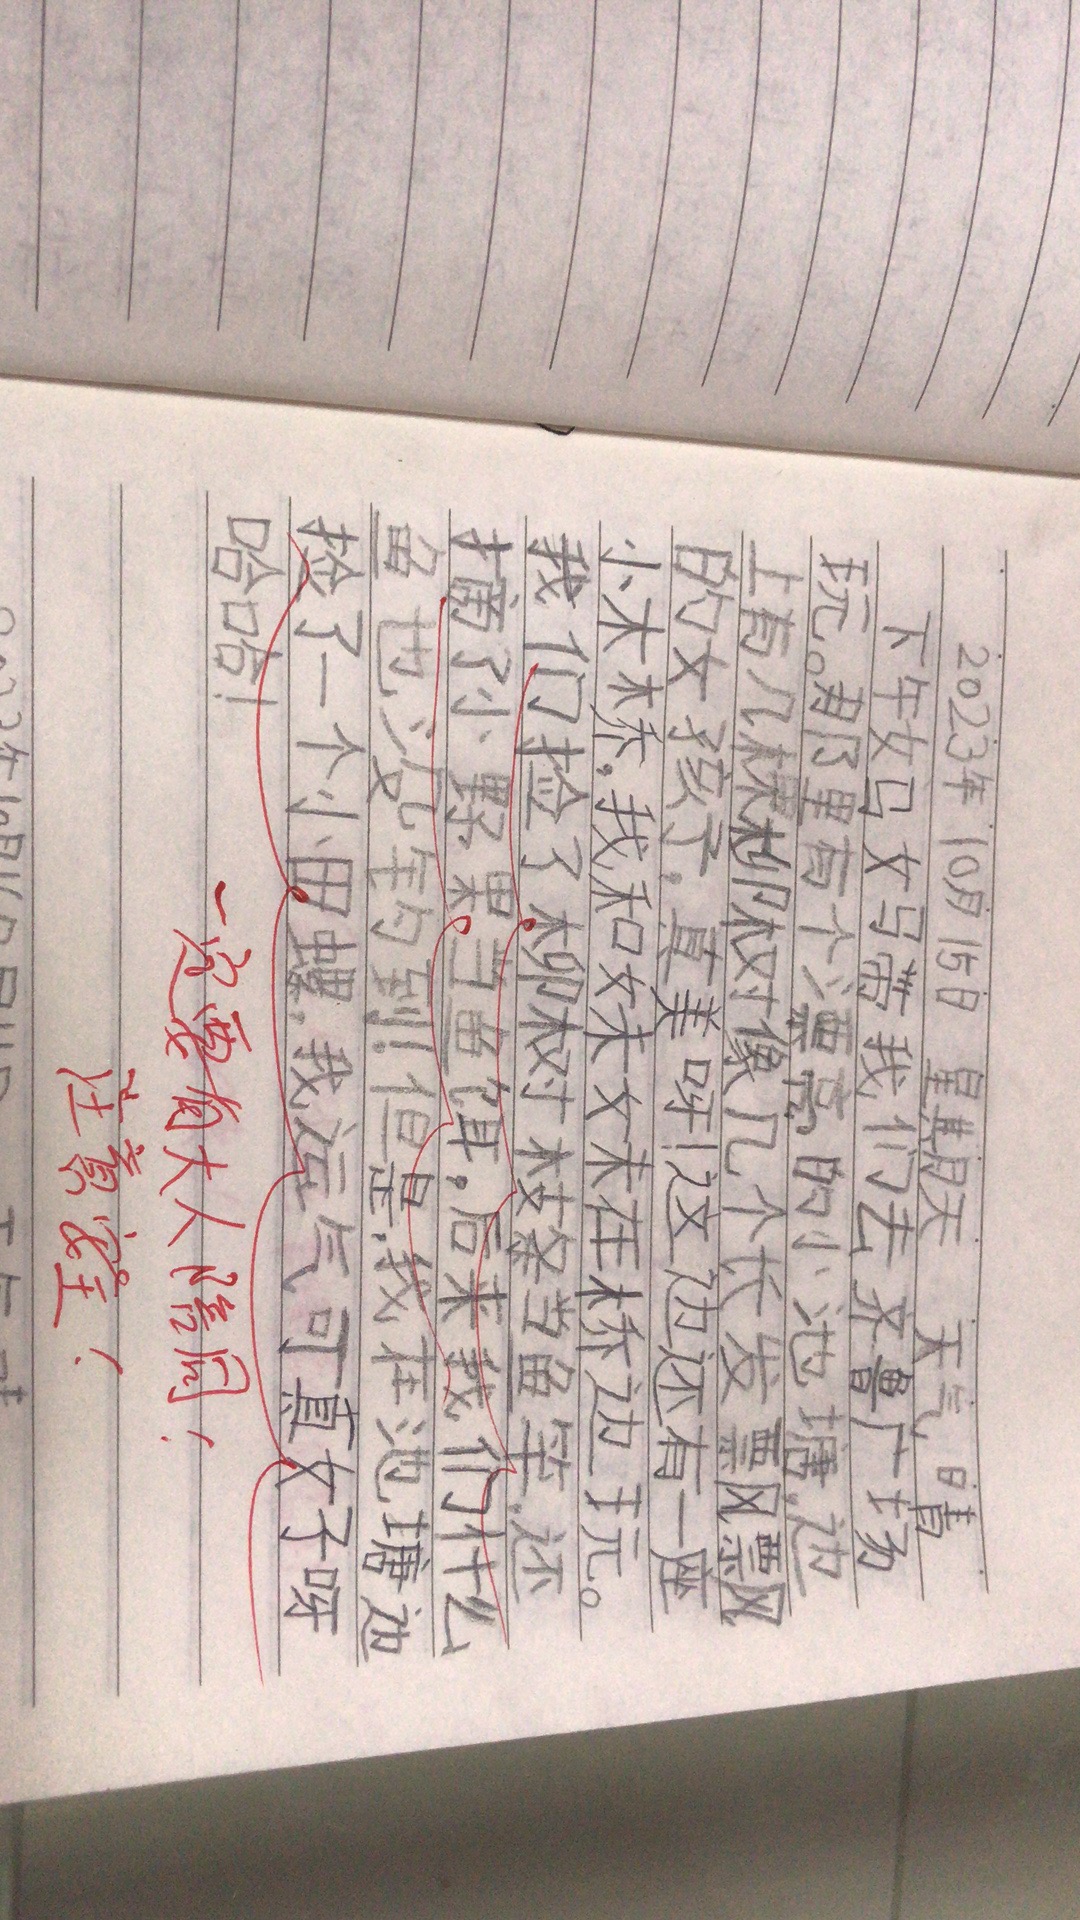 2023年10月15日 星期天 天气晴
下午妈妈带我们去齐鲁广场
玩。那里有个漂亮的小池塘,边
上有几棵柳树像几个长发飘飘
的女孩子,真美呀!这边还有一座
小木桥,我和妹妹在桥边玩。
我们捡了柳树枝条当鱼竿,还
摘了小野果当鱼饵。后来我们什么
鱼也没钓到!但是,我在池塘边
捡了一个小田螺,我运气可真好呀
哈哈!
一定要有大人陪同!
注意安全!